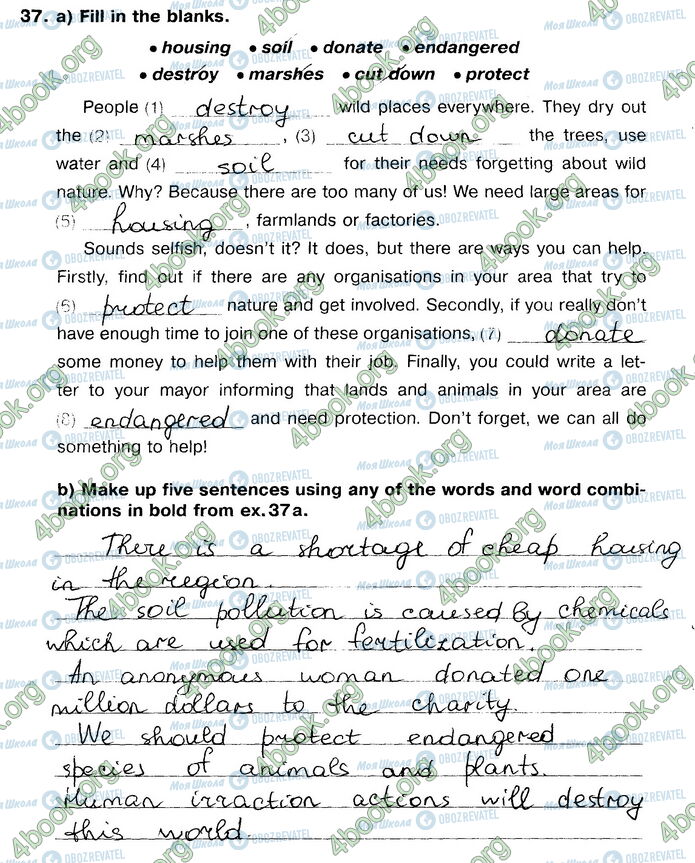 37. a) Fill in the blanks.
• housing • soil • donate • endangered
• destroy • marshes • cut down • protect
People (1) destroy wild places everywhere. They dry out
the (2) marshes, (3) cut down the trees, use
water and (4) soil for their needs forgetting about wild
nature. Why? Because there are too many of us! We need large areas for
(5) housing, farmlands or factories.
Sounds selfish, doesn't it? It does, but there are ways you can help.
Firstly, find out if there are any organisations in your area that try to
(6) protect nature and get involved. Secondly, if you really don't
have enough time to join one of these organisations, (7) donate
some money to help them with their job. Finally, you could write a let-
ter to your mayor informing that lands and animals in your area are
(8) endangered and need protection. Don't forget, we can all do
something to help!
b) Make up five sentences using any of the words and word combi-
nations in bold from ex. 37 a.
There is a shortage of cheap housing
in the region.
The soil pollution is caused by chemicals
which are used for fertilization.
An anonymous woman donated one
million dollars to the charity.
We should protect endangered
species of animals and plants.
Human irraction actions will destroy
this world.